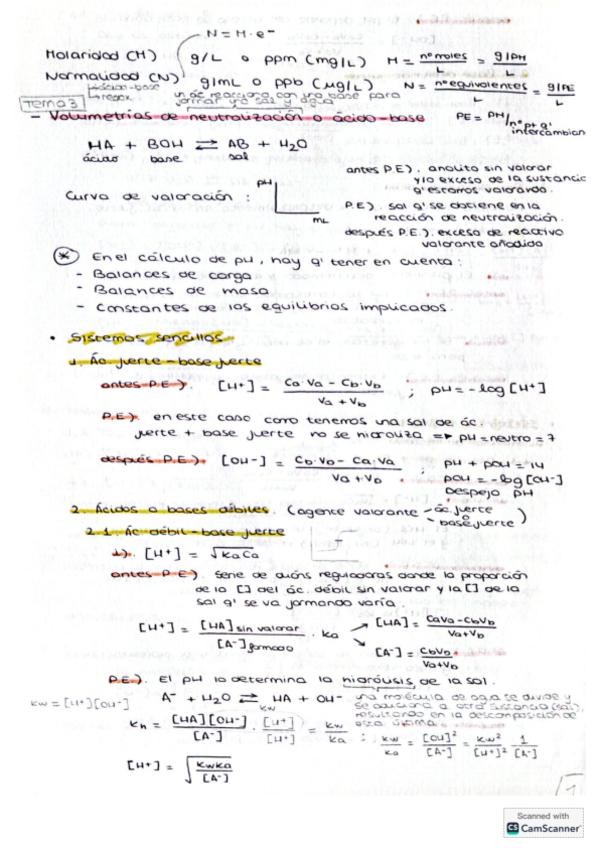 N = M · e⁻
Molaridad (M) g/L o ppm (mg/L) M = nº moles / L = g/PM / L
Normalidad (N) g/mL o ppb (µg/L) N = nº equivalentes / L = g/PE / L
ácido-base
redox
un ác reacciona con una base para
formar una sal y agua
Tema 3
PE = PM / nº pt q'
intercambian
- Volumetrías de neutralización o ácido-base
HA + BOH ⇌ AB + H₂O
ácido base sal
antes P.E). analito sin valorar
y/o exceso de la sustancia
q' estamos valorando.
Curva de valoración : pH
mL
P.E). sal q' se obtiene en la
reacción de neutralización.
después P.E). exceso de reactivo
valorante añadido
* En el cálculo de pH, hay q' tener en cuenta:
- Balances de carga
- Balances de masa
- Constantes de los equilibrios implicados.
• Sistemas sencillos
1. Ác. fuerte - base fuerte
antes P.E). [H⁺] = Ca·Va - Cb·Vb / Va + Vb ; pH = -log [H⁺]
P.E). en este caso como tenemos una sal de ác.
fuerte + base fuerte no se hidroliza ⇒ pH = neutro = 7
después P.E). [OH-] = Cb·Vb - Ca·Va / Va + Vb ; pH + pOH = 14
pOH = -log [OH-]
Despejo pH
2. Ácidos o bases débiles. (agente valorante - ác. fuerte o base fuerte)
2.1. Ác débil - base fuerte
[H⁺] = √KaCa
antes P.E). Serie de disóns reguladoras donde la proporción
de la [] del ác. débil sin valorar y la [] de la
sal q' se va formando varía.
[H⁺] = [HA] sin valorar / [A⁻] formado · Ka
[HA] = CaVa - CbVb / Va+Vb
[A⁻] = CbVb / Va+Vb
P.E). El pH lo determina la hidrólisis de la sal.
Kw = [H⁺][OH⁻] A⁻ + H₂O ⇌ HA + OH⁻
una molécula de agua se divide y
se adiciona a otra sustancia (sal),
resultando en la descomposición de
esta última.
Kw
Kh = [HA][OH⁻] / [A⁻] · [H⁺] / [H⁺] = Kw / Ka ; Kw / Ka = [OH]² / [A⁻] = Kw² / [H⁺]² 1 / [A⁻]
[H⁺] = √KwKa / [A⁻]
1
Scanned with
CS CamScanner